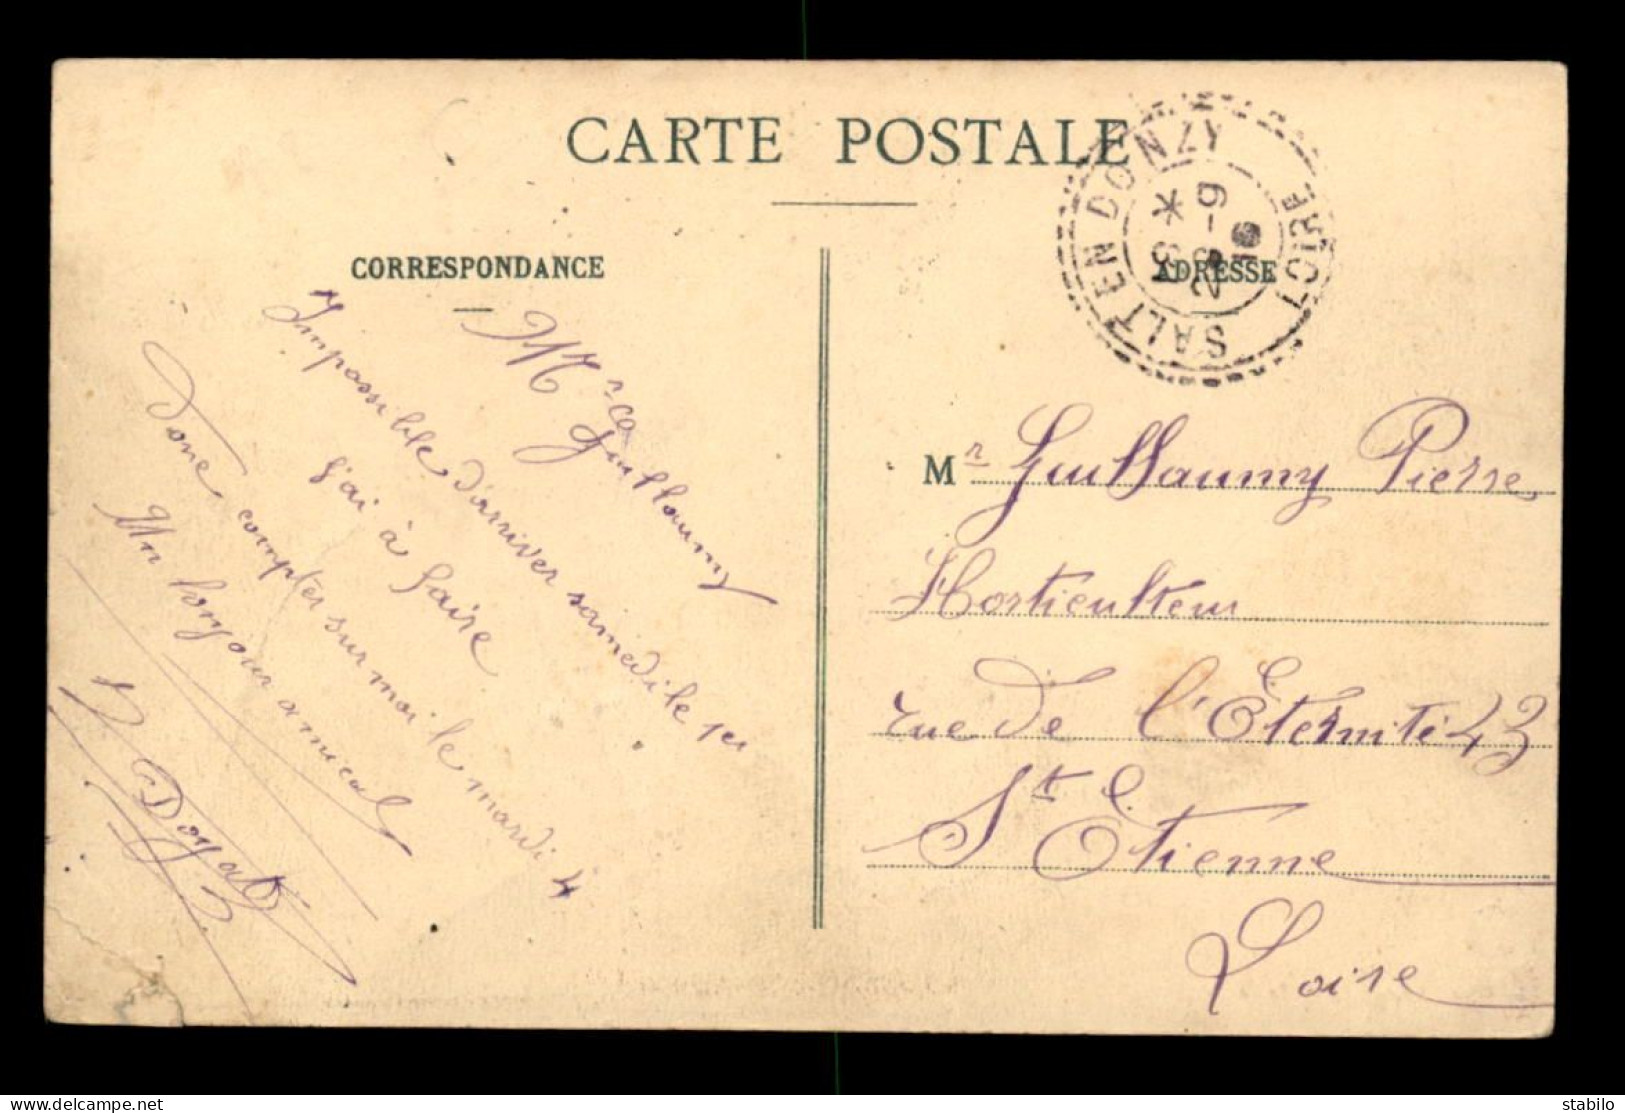 CARTE POSTALE
CORRESPONDANCE
ADRESSE
SALT EN DONZY
LOIRE
Mr
Guillaumy
Impossible d'arriver samedi le 1er
j'ai à faire
Donc compter sur moi le mardi 4
Un bonjour amical
Mr Guillaumy Pierre
Horticulteur
rue de l'Éternité 43
St Étienne
Loire
delcampe.net
stabilo